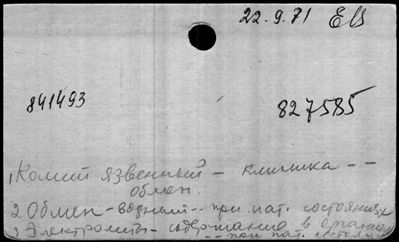 22.9.71 ЕВ
841493
827585
1 Колит язвенный - клиника --
обмен.
2 Обмен - водный -- при пат. состояниях
3 Электролиты - содержание в организме
-- при пат. состояниях